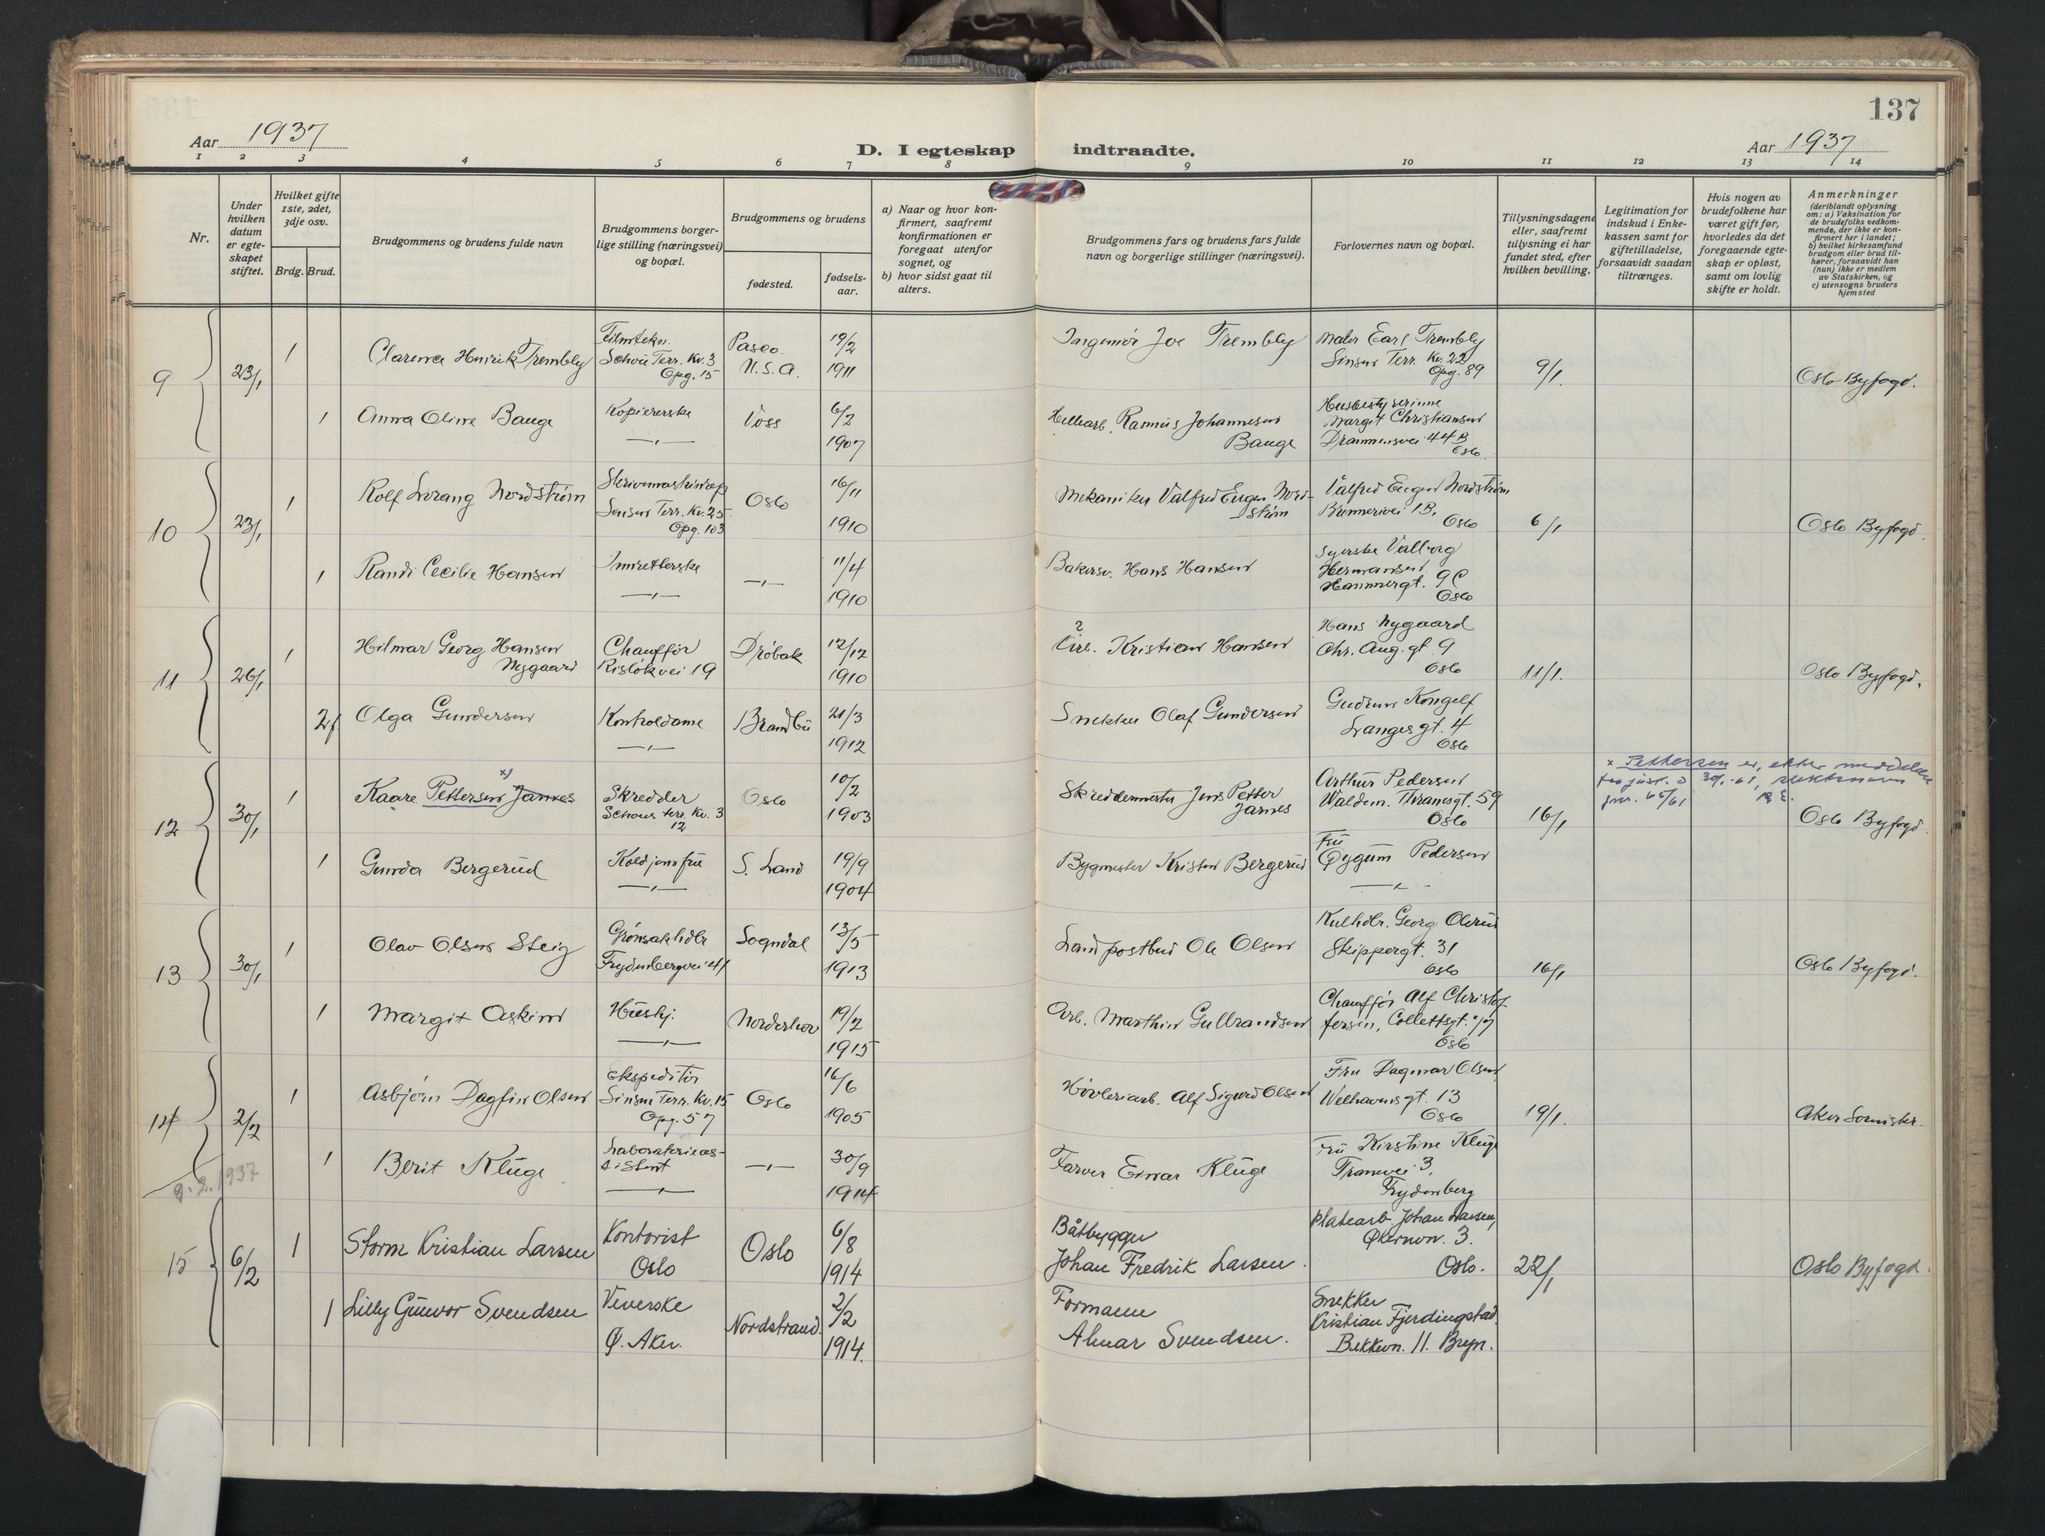 137
Aar 1937
D. I egteskap indtraadte.
Aar 1937
1 2 3 4 5 6 7 8 9 10 11 12 13 14
Nr.
Under hvilken datum er egteskapet stiftet.
Hvilket gifte 1ste, 2det, 3dje osv.
Brdg. Brud.
Brudgommens og brudens fulde navn
Brudgommens borgerlige stilling (næringsvei) og bopæl.
Brudgommens og brudens
fødested.
fødselsaar.
a) Naar og hvor konfirmert, saafremt konfirmationen er foregaat utenfor sognet, og
b) hvor sidst gaat til alters.
Brudgommens fars og brudens fars fulde navn og borgerlige stillinger (næringsvei).
Forlovernes navn og bopæl.
Tillysningsdagene eller, saafremt tullysning ei har fundet sted, efter hvilken bevilling.
Legitimation for indskud i Enkekassen samt for giftetilladelse, forsaavidt saadan tiltrænges.
Hvis nogen av brudefolkene har været gift før, hvorledes da det foregaaende egteskap er opløst, samt om lovlig skifte er holdt.
Anmerkninger
(deriblandt oplysning om: a) Vaksination for de brudefolks vedkommende, der ikke er konfirmert her i landet; b) hvilket kirkesamfund brudgom eller brud tilhører, forsaavidt han (hun) ikke er medlem av Statskirken, og c) utensogns bruders hjemsted
9 23/1 1 Clarence Henrik Trembly Filmtekn. Schou Terr. Kv. 3 Opg. 15 Pasco. U.S.A. 19/2 1911 Ingeniør Joe Trembly Maler Earl Trembly Sinsen Terr. Kv. 22 Opg. 89 9/1. Oslo Byfogd.
1 Anna Oline Bauge Kopiererske —„— Voss 6/2 1907 Rasmus Johannesen Bauge Husbestyrerinne Margit Christiansen Drammensvei 44 B Oslo.
10 23/1 1 Rolf Lorang Nordstrøm Skrivemaskinrep Sinsen Terr. Kv. 25 Opg. 103 Oslo 16/11 1910 Mekaniker Valfred Eugen Nordstrøm Valfred Eugen Nordstrøm 1B, Oslo 6/1 Oslo Byfogd.
1 Randi Cecilie Hansen Innretterske —„— —„— 11/4 1910 Bakersv. Hans Hansen Syerske Valborg Hermansen Hammergt. 9C Oslo
11 26/1 1 Hilmar Georg Hansen Nygaard Chauffør Risløkvei 19 Drøbak 12/12 1910 Kristian Hansen Hans Nygaard Chr. Aug. gt. 9 Oslo 11/1. Oslo Byfogd.
2 Olga Gundersen Kontroldame —„— Brandbu 21/3 1912 Snekker Olaf Gundersen Gudrun Kongelf Langes gt. 4 Oslo
12 30/1 1 Kaare Pettersen x) Jarnes Skredder Schous terr. Kv. 3 12 Oslo 10/2 1903 Skreddermester Jens Petter Jarnes Arthur Pedersen Waldem. Thranesgt. 59 Oslo 16/1 Oslo Byfogd
x Pettersen er, etter meddelelse fra just. d 30/1-61, slektsnavn jnr. 65/61
1 Gunda Bergerud Koldjomfru —„— S. Land 19/9 1904 Bygmester Kristen Bergerud Fru Gygum Pedersen —„—
13 30/1 1 Olav Olsen Steig Grønsakhdlr Frydenbergvei 41 Sogndal 13/5 1913 Landpostbud Ole Olsen Kulhdlr. Georg Olsrud Skippergt. 31 Oslo 16/1 Oslo Byfogd.
1 Margit Askim Hushj. —„— Norderhov 19/2 1915 Arb. Marthin Gulbrandsen Chauffør Alf Christoffersen, Collettsgt. Oslo
14 2/2 1 Asbjørn Dagfin Olsen Ekspeditør Sinsen Terr. Kv. 15 Opg. 57 Oslo 16/6 1905 Høvleriarb. Alf Sigurd Olsen Fru Dagmar Olsen, Welhavensgt. 13 Oslo 19/1. Aker Sorenskr.
1 Berit Kluge Laboratorieassistent —„— —„— 30/9 1914 Farver Einar Kluge Fru Kirstine Kluge Tranvei 3. Frydenberg
9.2.1937
15 6/2 1 Storm Kristian Larsen Kontorist Oslo Oslo 6/8 1914 Båtbygger Johan Fredrik Larsen. Platearb Johan Larsen, Økernvn. 3. Oslo. 22/1 Oslo Byfogd.
1 Lilly Gunvor Svendsen Veverske Ø. Aker. Nordstrand. 2/2 1914. Formann Almar Svendsen. Snekker Kristian Fjerdingstad. Bekkevn. 11. Bryn.